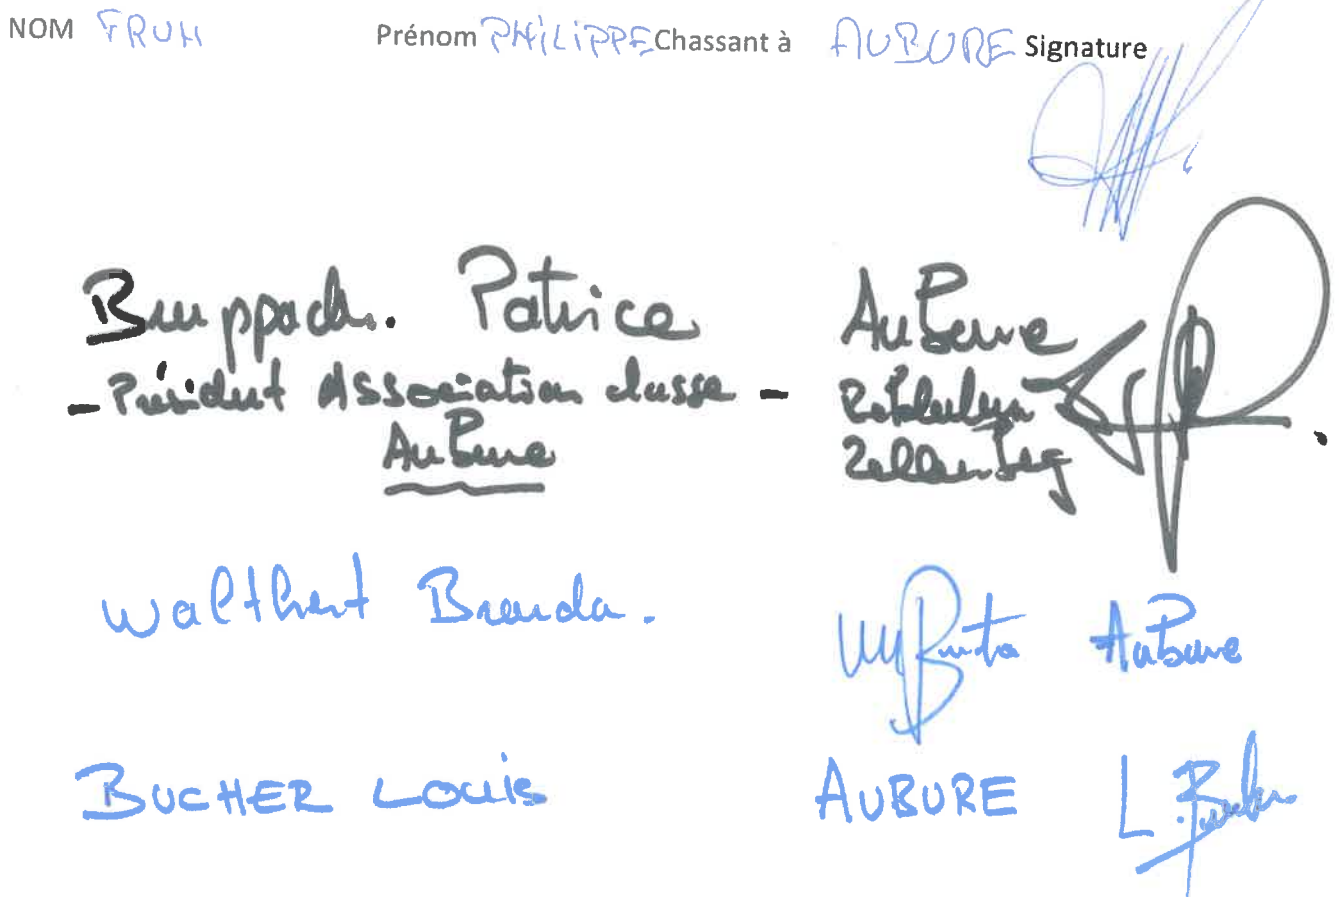 NOM FRUH Prénom PHILIPPE Chassant à AUBURE Signature
Patrice Aubure
- Président Association chasse -
Aubure Zellenberg
Walthert Brenda. Aubure
BUCHER Louis AUBURE L. Bucher